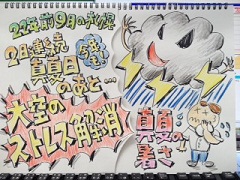 22年前9月の札幌
2日連続
真夏日
のあと…
大空の
ストレス解消
真夏の
暑さ